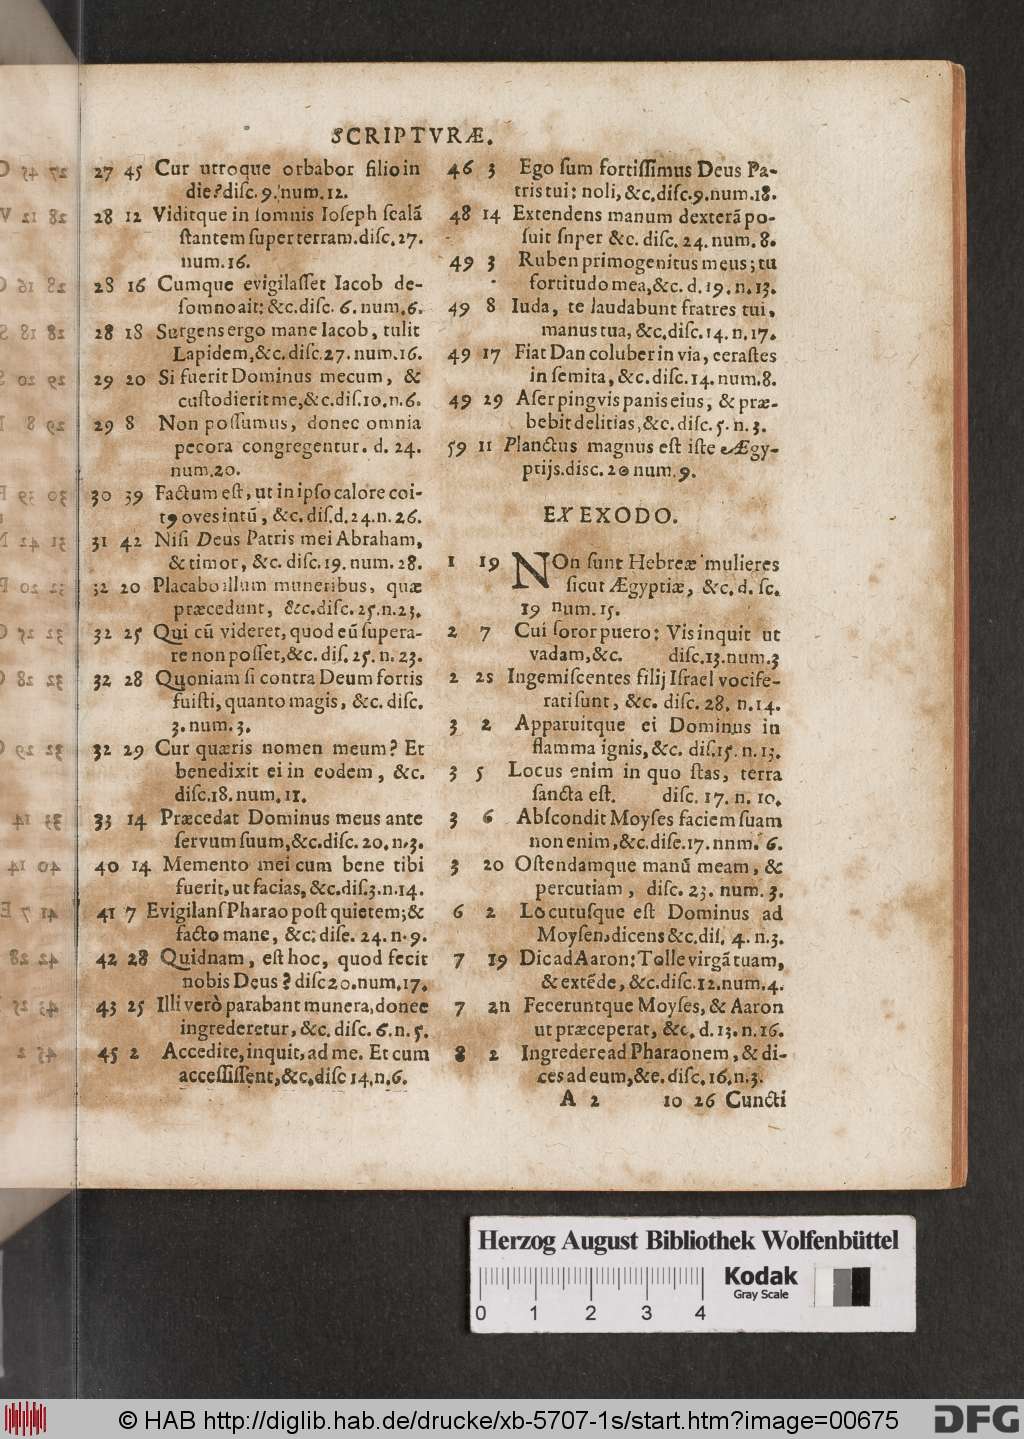 SCRIPTVRÆ.
27 45 Cur utroque orbabor filio in
die? disc. 9. num. 12.
28 12 Viditque in somnis Ioseph scalã
stantem super terram. disc. 27.
num. 16.
28 16 Cumque evigilasset Iacob de-
somno ait: &c. disc. 6. num. 6.
28 18 Surgens ergo mane Iacob, tulit
Lapidem, &c. disc. 27. num. 16.
29 20 Si fuerit Dominus mecum, &
custodierit me, &c. dis. 10. n. 6.
29 8 Non possumus, donec omnia
pecora congregentur. d. 24.
num. 20.
30 39 Factum est, ut in ipso calore coi-
tꝰ oves intū, &c. dis. d. 24. n. 26.
31 42 Nisi Deus Patris mei Abraham,
& timor, &c. disc. 19. num. 28.
32 20 Placabo illum muneribus, quæ
præcedunt, &c. disc. 25. n. 23.
32 25 Qui cū videret, quod eū supera-
re non posset, &c. dis. 25. n. 23.
32 28 Quoniam si contra Deum fortis
fuisti, quanto magis, &c. disc.
3. num. 3.
32 29 Cur quæris nomen meum? Et
benedixit ei in eodem, &c.
disc. 18. num. 11.
33 14 Præcedat Dominus meus ante
servum suum, &c. disc. 20. n. 3.
40 14 Memento mei cum bene tibi
fuerit, ut facias, &c. dis. 3. n. 14.
41 7 Evigilans Pharao post quietem; &
facto mane, &c: dise. 24. n. 9.
42 28 Quidnam, est hoc, quod fecit
nobis Deus? disc 20. num. 17.
43 25 Illi verò parabant munera, donec
ingrederetur, &c. disc. 6. n. 5.
45 2 Accedite, inquit, ad me. Et cum
accessissent, &c. disc 14. n. 6.
46 3 Ego sum fortissimus Deus Pa-
tris tui: noli, &c. disc. 9. num. 18.
48 14 Extendens manum dexterã po-
suit snper &c. disc. 24. num. 8.
49 3 Ruben primogenitus meus; tu
fortitudo mea, &c. d. 19. n. 13.
49 8 Iuda, te laudabunt fratres tui,
manus tua, &c. disc. 14. n. 17.
49 17 Fiat Dan coluber in via, cerastes
in semita, &c. disc. 14. num. 8.
49 29 Aser pingvis panis eius, & præ-
bebit delitias, &c. disc. 5. n. 3.
59 11 Planctus magnus est iste Ægy-
ptijs. disc. 20 num. 9.
EX EXODO.
1 19 NOn sunt Hebreæ mulieres
sicut Ægyptiæ, &c. d. sc.
19 num. 15.
2 7 Cui soror puero: Vis inquit ut
vadam, &c. disc. 13. num. 3
2 25 Ingemiscentes filij Israel vocife-
rati sunt, &c. disc. 28. n. 14.
3 2 Apparuitque ei Dominus in
flamma ignis, &c. dis. 15. n. 13.
3 5 Locus enim in quo stas, terra
sancta est. disc. 17. n. 10.
3 6 Abscondit Moyses faciem suam
non enim, &c. dise. 17. nnm. 6.
3 20 Ostendamque manū meam, &
percutiam, disc. 23. num. 3.
6 2 Locutusque est Dominus ad
Moysen, dicens &c. dis. 4. n. 3.
7 19 Dic ad Aaron: Tolle virgã tuam,
& extēde, &c. disc. 12. num. 4.
7 2n Feceruntque Moyses, & Aaron
ut præceperat, &c. d. 13. n. 16.
8 2 Ingredere ad Pharaonem, & di-
ces ad eum, &e. disc. 16. n. 3.
A 2 10 26 Cuncti
Herzog August Bibliothek Wolfenbüttel
Kodak
Gray Scale
0 1 2 3 4
© HAB http://diglib.hab.de/drucke/xb-5707-1s/start.htm?image=00675
DFG